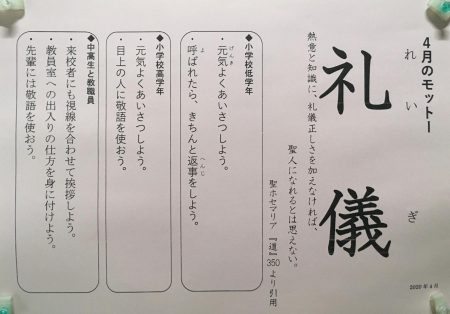 4月のモットー
礼儀
れいぎ
熱意と知識に、礼儀正しさを加えなければ、
聖人になれるとは思えない。
聖ホセマリア『道』350より引用
◆小学校低学年
・元気よくあいさつしよう。
げんき
・呼ばれたら、きちんと返事をしよう。
よ
へんじ
◆小学校高学年
・元気よくあいさつしよう。
・目上の人に敬語を使おう。
◆中高生と教職員
・来校者にも視線を合わせて挨拶しよう。
・教員室への出入りの仕方を身に付けよう。
・先輩には敬語を使おう。
2020年4月